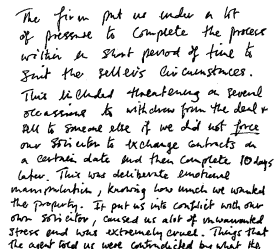 The firm put us under a lot
of pressure to complete the process
within a short period of time to
suit the seller's circumstances.
This included threatening on several
occassions to withdraw from the deal +
sell to someone else if we did not force
our solicitor to exchange contracts on
a certain date and then complete 10 days
later. This was deliberate emotional
manipulation, knowing how much we wanted
the property. It put us into conflict with our
own solicitor, caused us alot of unwarranted
stress and was extremely cruel. Things that
the agent told us were contradicted by what the